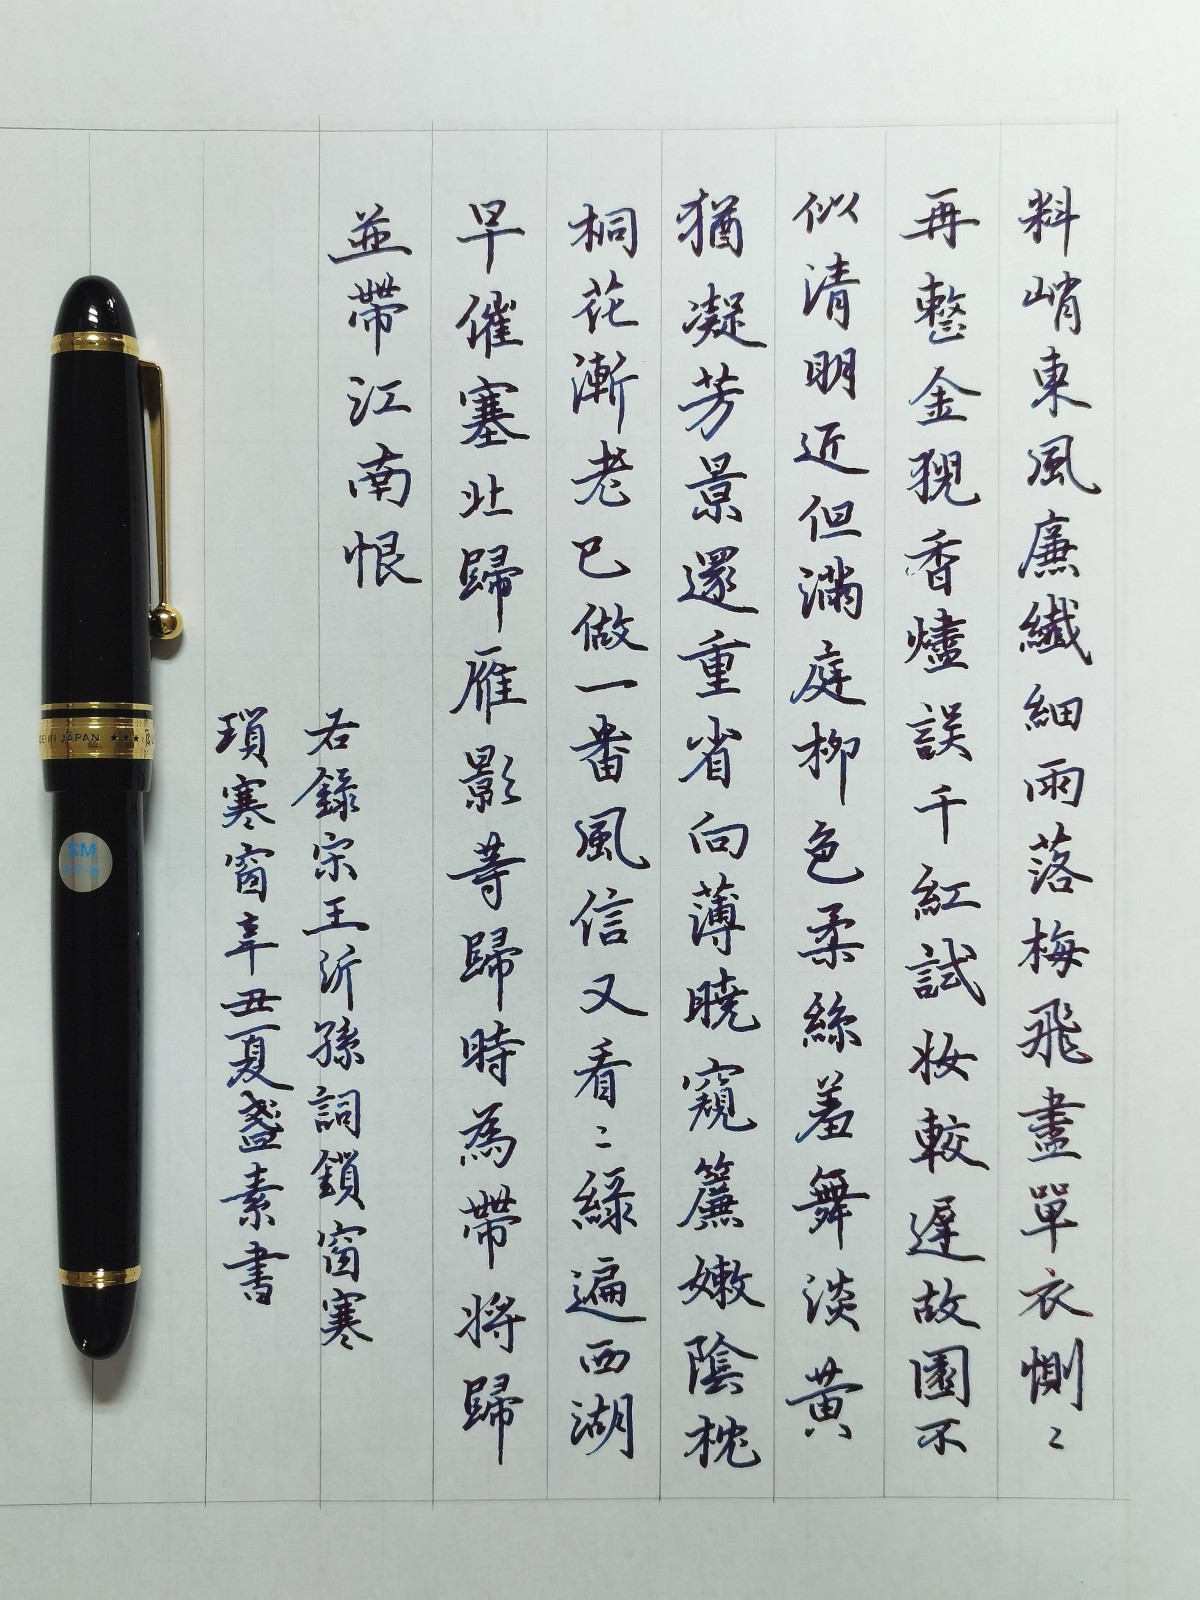 料峭東風廉纖細雨落梅飛盡單衣惻〻
再整金猊香燼誤千紅試妝較遲故園不
似清明近但滿庭柳色柔絲羞舞淡黃
猶凝芳景還重省向薄曉窺簾嫩陰欹枕
桐花漸老已做一番風信又看〻綠遍西湖
早催塞北歸雁影等歸時為帶將歸
並帶江南恨
右錄宋王沂孫詞鎖窗寒
瑣寒窗辛丑夏盞素書
JAPAN ★★★
SM